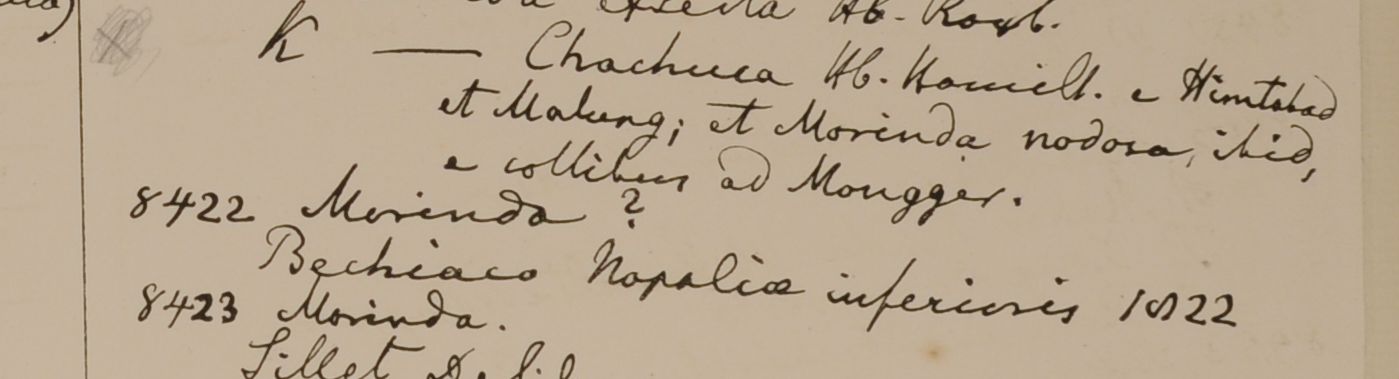 exserta Hb. Roxb.
K — Chachuca Hb. Hamilt. e Himtabad
et Malung; et Morinda nodosa, ibid,
e collibus ad Mougger.
8422 Morinda ?
Bechiaco Napaliæ inferioris 1822
8423 Morinda.
Sillet